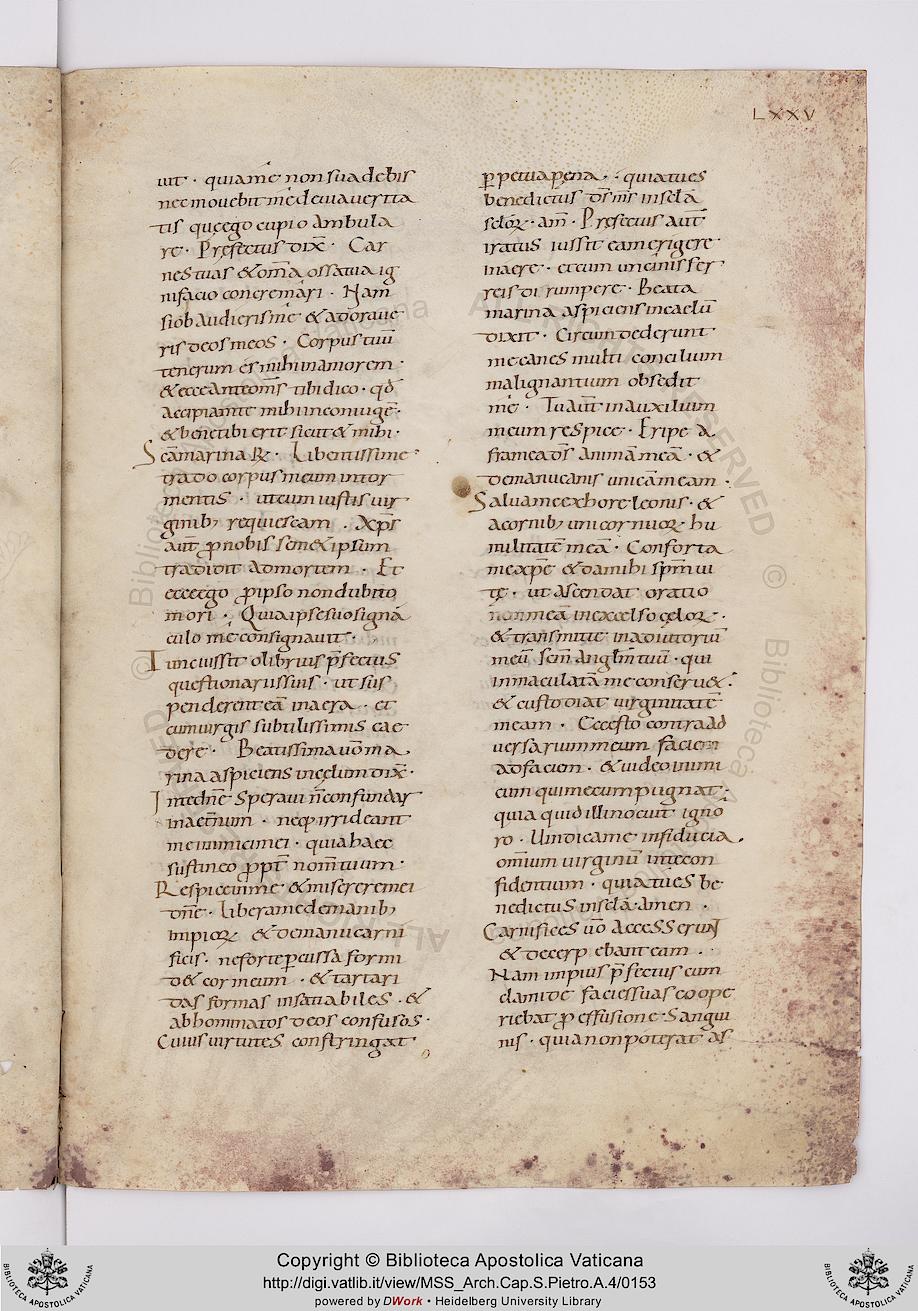 LXXV
uit · quia me non suadebis
nec movebit me de via verita
tis que ego cupio ambula
re · Prefectus dix̄ · Car
nes tuas & om̄a ossa tua ig
ni facio concremari · Nam
si obaudieris me & adoraue
ris deos meos · Corpus tuū
tenerum es mihi in amorem ·
& ecce ante om̄s tibi dico · qd̄
accipiam te mihi in coniugē ·
& bene tibi erit sicut & mihi ·
Scā marina R̄ · Libentissime
trado corpus meum in tor
mentis · ut cum iustis uir
ginib; requiescam · Xp̄s
aut̄ ꝓ nobis sem&ipsum
tradidit ad mortem · Et
ecce ego ꝓ ipso non dubito
mori · Quia ipse suo signa
culo me consignauit ·
Tunc iussit olibrius p̄fectus
questionariis suis · ut sus
penderent eā in aera · et
cum uirgis subtilissimis cae
dere · Beatissima uō ma
rina aspiciens in cęlum dix̄ ·
In te dn̄e speraui n̄ confundar
in aet̄num · neq; irrideant
me inimici mei · quia haec
sustineo ꝓpt̄ nom̄ tuum ·
Respice in me · & miserere mei
dn̄e · Libera me de manib;
impioꝝ & de manu carni
ficis · ne forte ꝑcussa formi
d& cor meum · & tartari
das formas insatiabiles · &
abhominatos deos confusos ·
Cuius uirtutes constringat
ꝑpetua pęna · quia tu es
benedictus d̄s m̄s in sclā
scloꝝ · am̄ · Prefectus aut̄
iratus iussit eam erigere
in aere · et cum uncinis fer
reis dirumpere · Beata
marina aspiciens in caelū
dixit · Circumdederunt
me canes multi concilium
malignantium obsedit
me · Tu aut̄ in auxilium
meum respice · Eripe a
framea d̄s animā meā · &
de manu canis unicam eam ·
Salua me ex hore leonis · &
a cornib; unicornuoꝝ hu
militatē meā · Conforta
me xp̄e & da mihi sp̄m ui
tę · ut ascendat oratio
mea in excelso cęloꝝ ·
& transmitte in adiutoriū
meū scm̄ angłm tuū · qui
inmaculatā me conseru& ·
& custodiat uirginitatē
meam · Ecce sto contra ad
uersarium meum faciem
ad faciem · & uideo inimi
cum qui mecum pugnat ·
quia quid illi nocuit igno
ro · Uindica me in fiducia
omnium uirginū in te con
fidentium · quia tu es be
nedictus in sclā · amen ·
Carnifices uō accesserunt
& decerpebant eam ·
Nam impius p̄fectus cum
clamide facies suas coope
riebat ꝓ effusione sangui
nis · quia non poterat as
Copyright © Biblioteca Apostolica Vaticana
http://digi.vatlib.it/view/MSS_Arch.Cap.S.Pietro.A.4/0153
powered by DWork • Heidelberg University Library
BIBLIOTECA APOSTOLICA VATICANA
BIBLIOTECA APOSTOLICA VATICANA